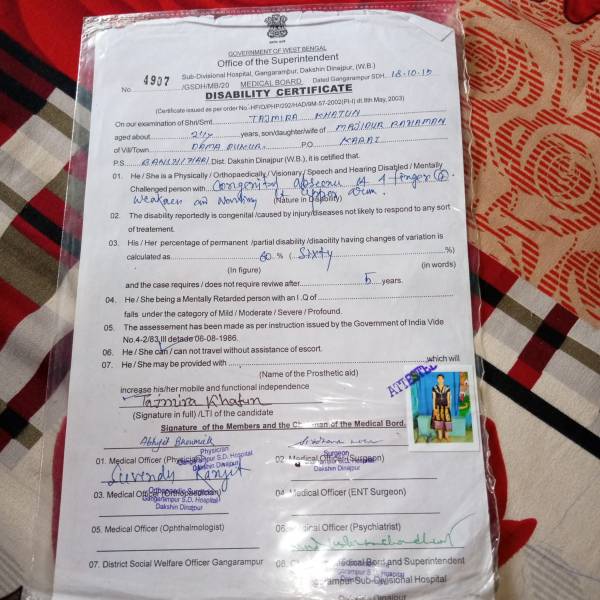 GOVERNMENT OF WEST BENGAL
Office of the Superintendent
Sub-Divisional Hospital, Gangarampur, Dakshin Dinajpur, (W.B.)
No 4907 /GSDH/MB/20 MEDICAL BOARD Dated Gangarampur SDH. 18-10-15
DISABILITY CERTIFICATE
(Certificate issued as per order No.-HF/O/PHP/292/HAD/9M-57-2002(Pt-I) dt.8th May, 2003)
On our examination of Shri/Smt. TAJMIRA KHATUN
aged about 24y years, son/daughter/wife of MAJIDUR RAHAMAN
of Vill/Town DAMA PUKUR P.O KARAI
P.S. BANSIHARI Dist. Dakshin Dinajpur (W.B.), it is certified that.
01. He / She is a Physically / Orthopaedically / Visionary / Speech and Hearing Disabled / Mentally
Challenged person with Congenital absence of 4 finger
Weakness and (Nature in Disability) Upper arm.
02. The disability reportedly is congenital /caused by injury/diseases not likely to respond to any sort
of treatement.
03. His / Her percentage of permanent /partial disability /disaoitily having changes of variation is
calculated as 60 % ( Sixty %)
(In figure) (in words)
and the case requires / does not require reviwe after 5 years.
04. He / She being a Mentally Retarded person with an I .Q of
falls under the category of Mild / Moderate / Severe / Profound.
05. The assessement has been made as per instruction issued by the Government of India Vide
No.4-2/83.III detade 06-08-1986.
06. He / She can / can not travel without assistance of escort.
07. He / She may be provided with which will
(Name of the Prosthetic aid)
increase his/her mobile and functional independence
ATTESTED
Tajmira Khatun
(Signature in full) /LTI of the candidate
Signature of the Members and the Chairman of the Medical Bord.
Abhijit Bhowmik
Physician
Surgeon
01. Medical Officer (Physician) 02. Medical Officer (Surgeon)
Gangarampur S.D. Hospital
Dakshin Dinajpur
Dakshin Dinajpur
03. Medical Officer (Orthopaedician) 04. Medical Officer (ENT Surgeon)
Orthopaedic Surgeon
Gangarampur S.D. Hospital
Dakshin Dinajpur
05. Medical Officer (Ophthalmologist) 06. Medical Officer (Psychiatrist)
07. District Social Welfare Officer Gangarampur 08. Medical Bord and Superintendent
Gangarampur S.D. Hospital
Gangarampur Sub-Divisional Hospital
Dakshin Dinajpur